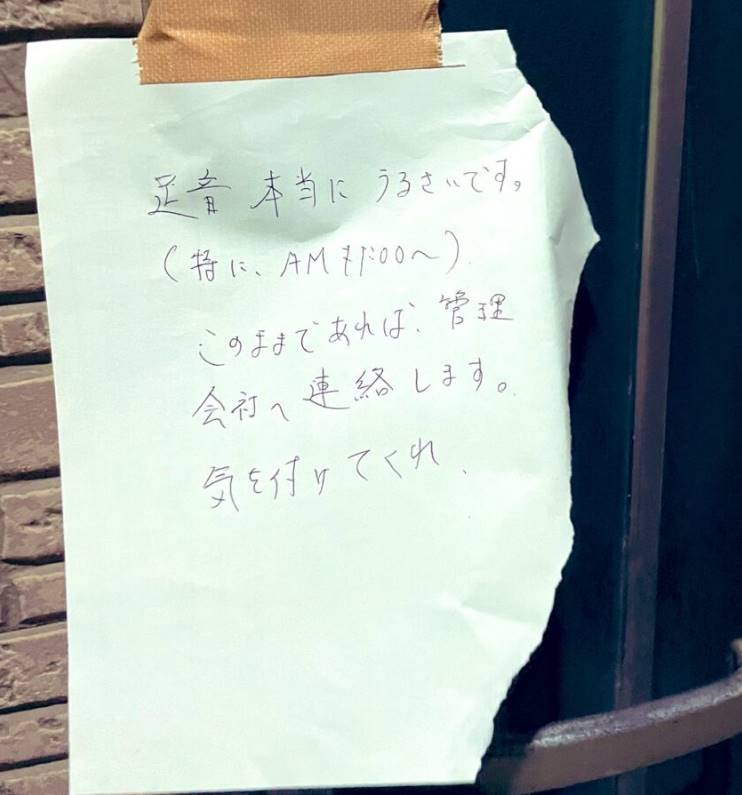 足音 本当に うるさいです。
(特に、AM :00〜)
このままであれば、管理
会社へ 連絡します。
気を付けてくれ、